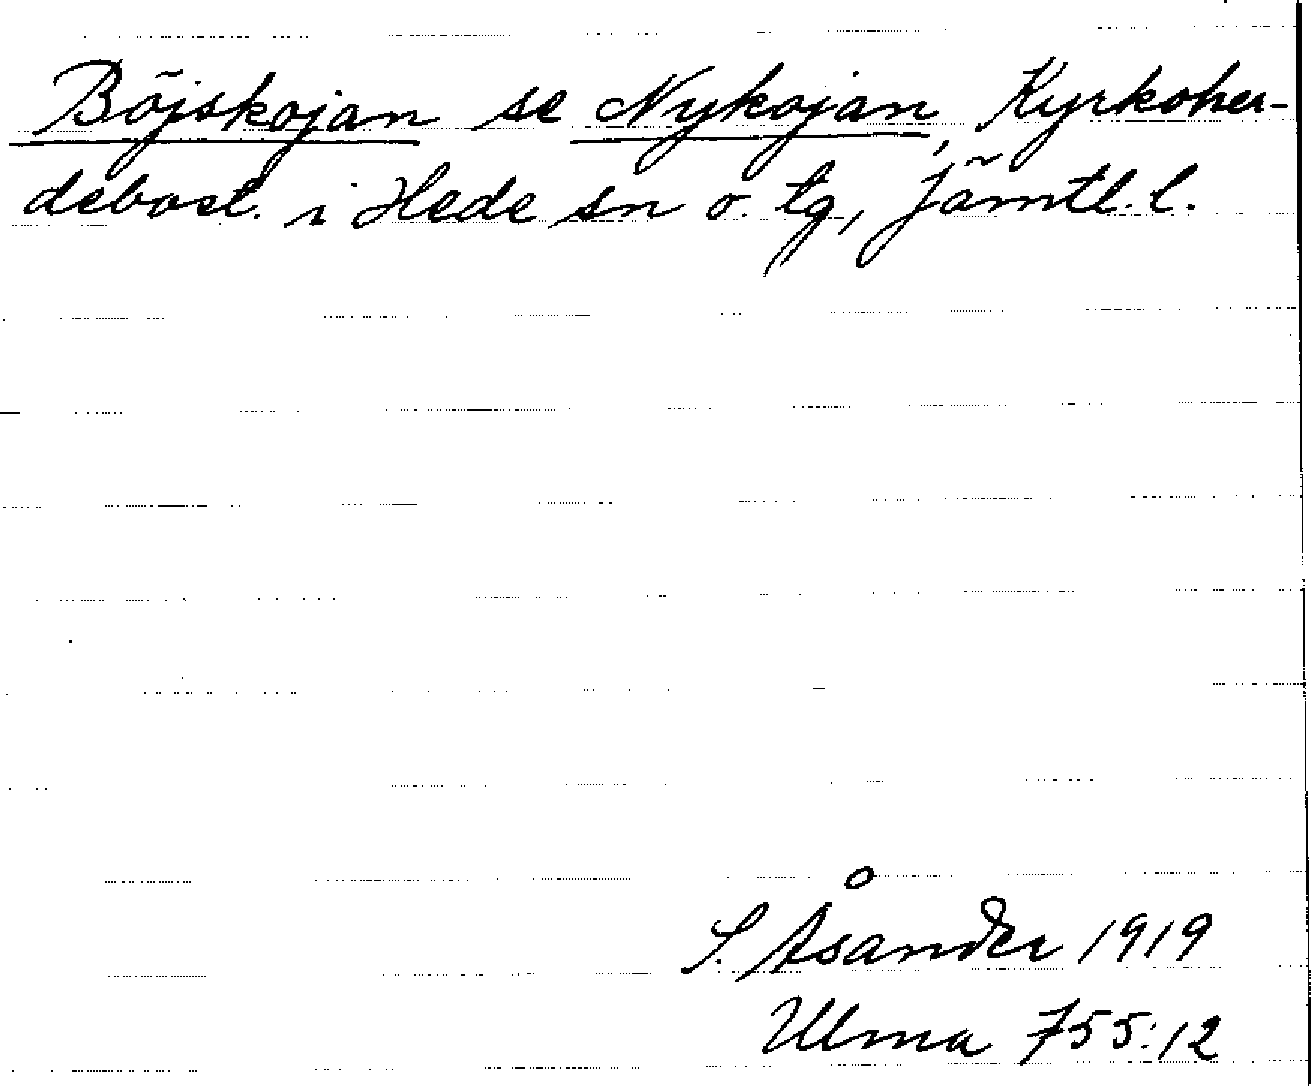 Böjskojan se Nykojan, Kyrkoher-
debost. i Hede sn o. tg, Jämtl. l.
S. Åsander 1919
Ulma 755:12